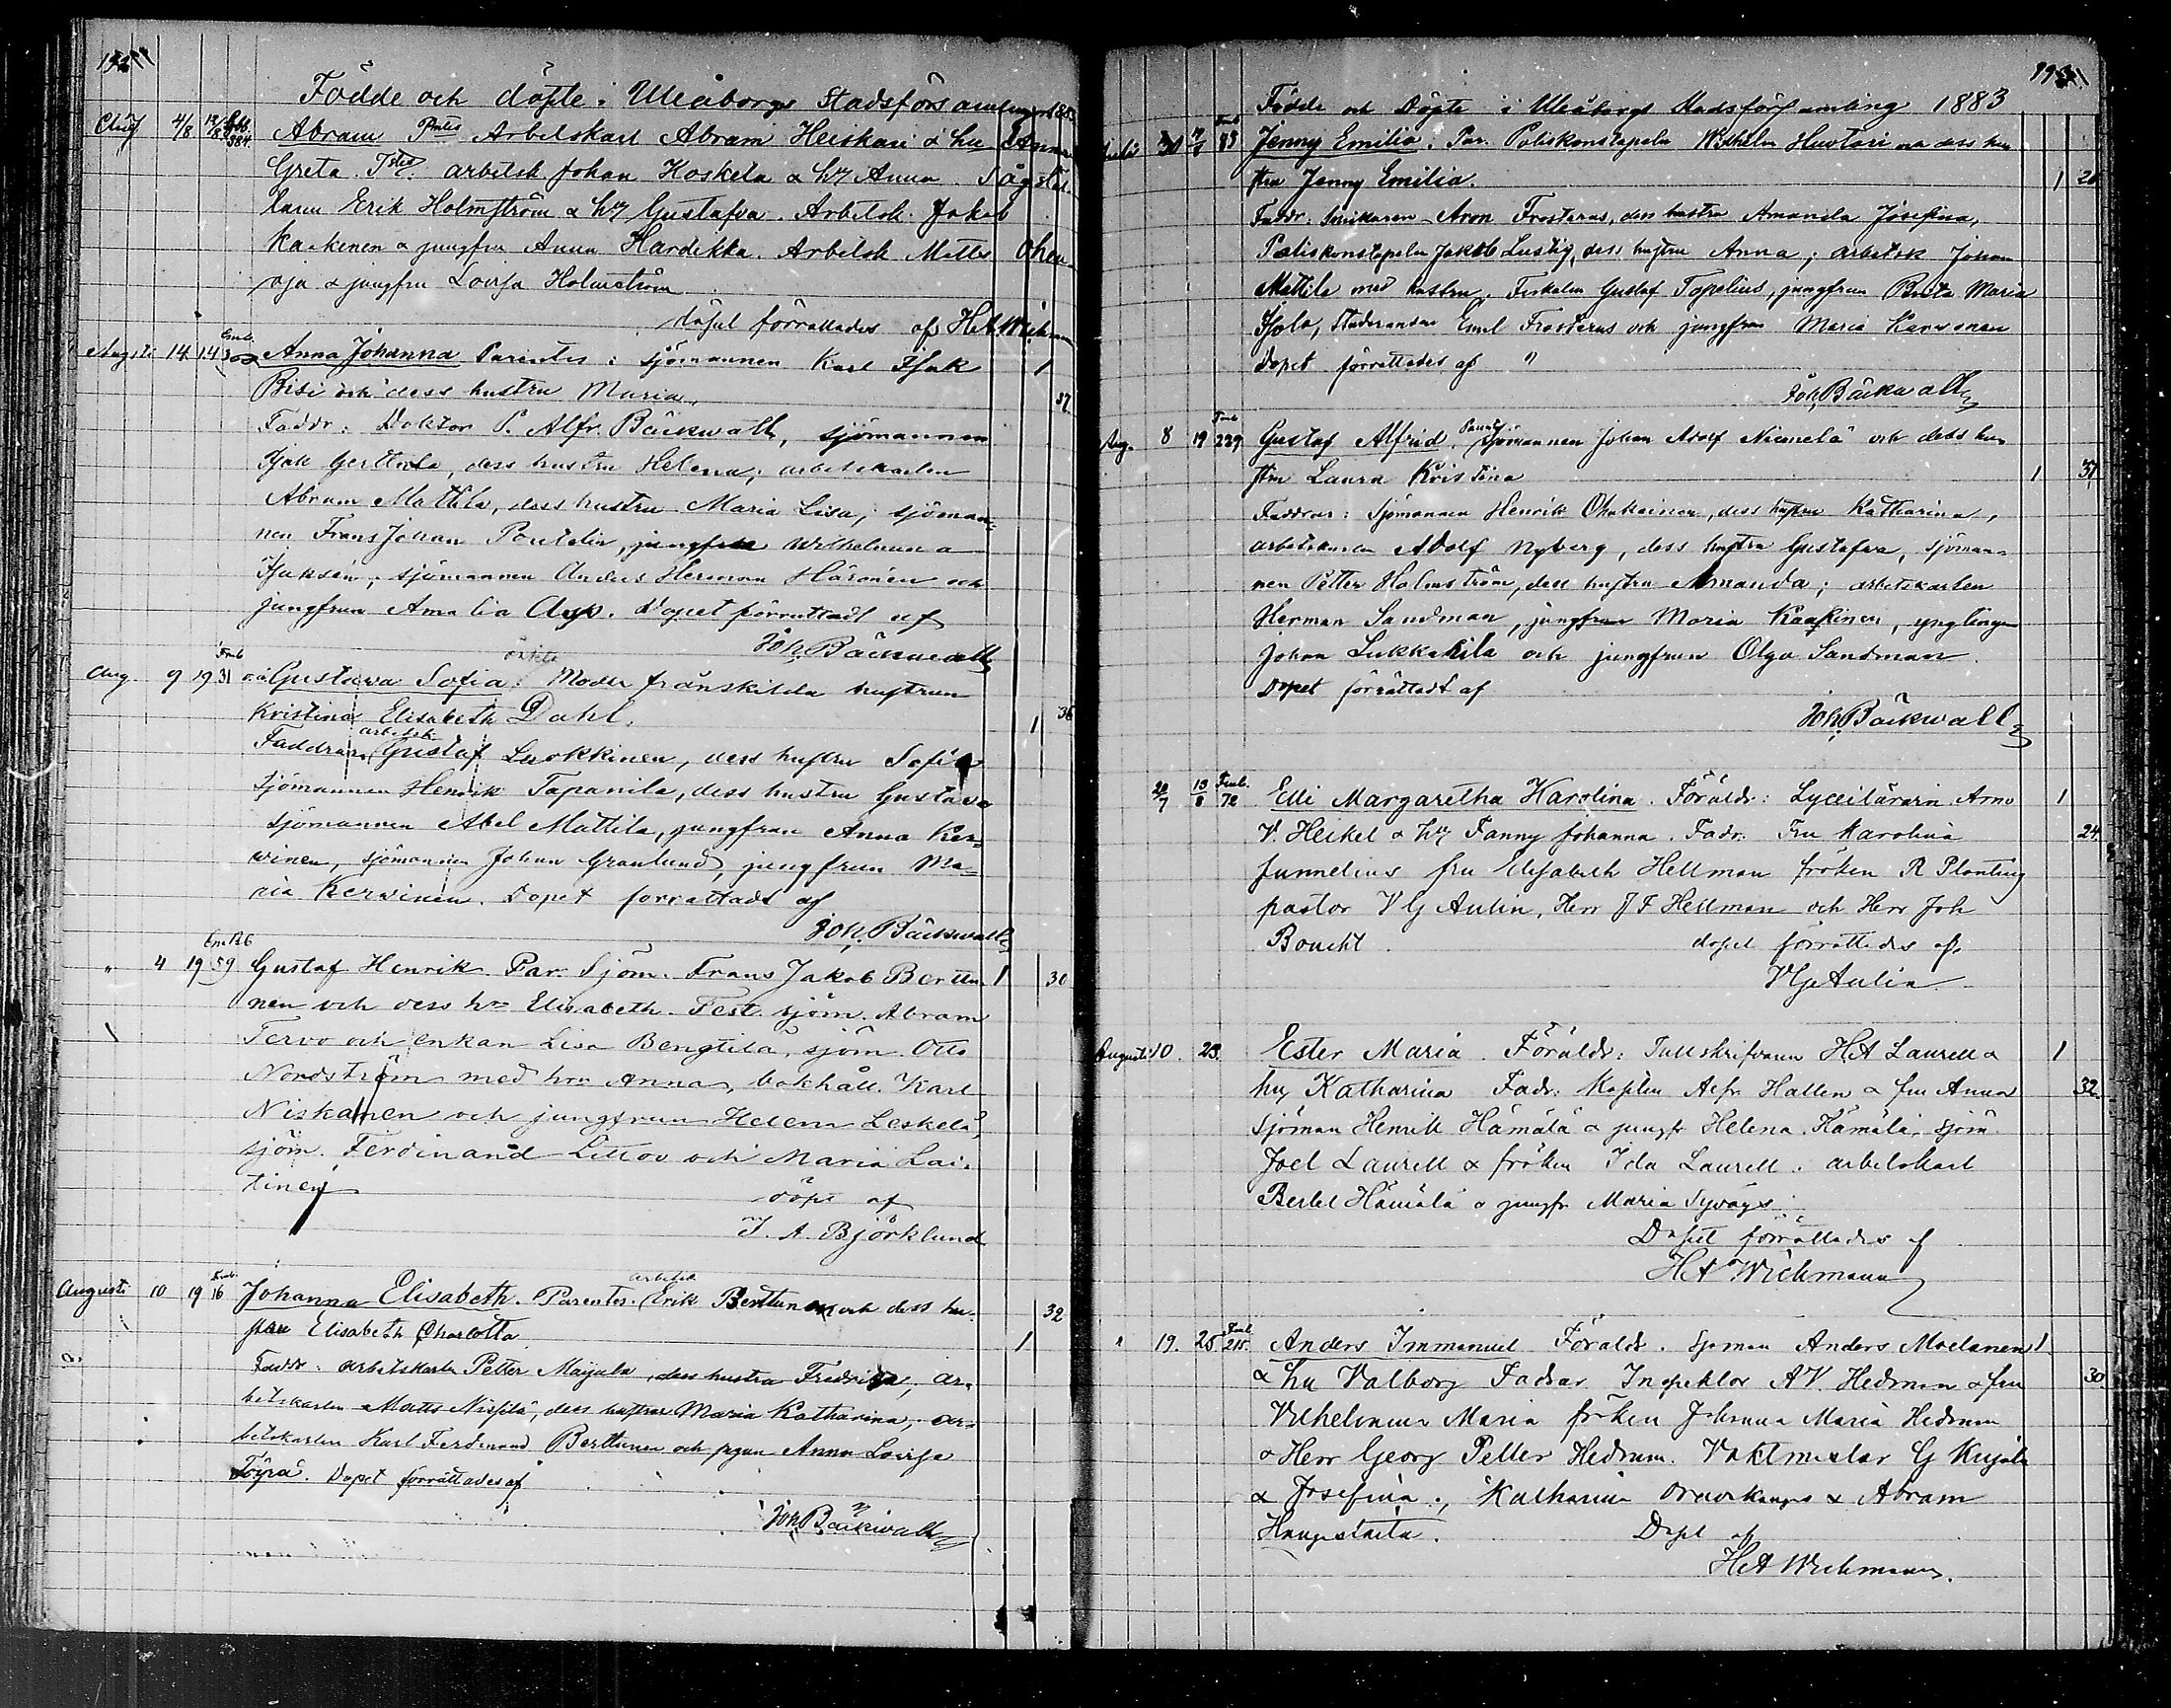 Födde och döpte i Uleåborgs Stadsförsamling 1883
Aug 4/8 12/8 384. Abram Arbetskarl Abram Heiskari & hu Anna
Greta. arbetsk Johan Koskela & hu Anna.
Erik Holmström & hu Gustafva. Arbetsk. Jakob
Kaakinen & jungfru Anna Hardikka. Arbetsk Matts
oja & jungfru Lovisa Holmström
döpel förrättades af HA Wichmann
Augusti 14. 14 Anna Johanna Parentes: sjömannen Karl Isak 1
Bisi och dess hustru Maria. 37
Faddr: Doktor P. Alfr. Bäckwall, sjömannen
Isak Gerttula, dess hustru Helena; arbetskarlen
Abram Mattila, dess hustru Maria Lisa; sjöman-
nen Frans Johan Poutelin, jungfrun Wilhelmina
Isaksén; sjömannen Anders Herman Härönen och
jungfrun Amalia. Dopet förrättadt af
Joh. Bäckwall
Aug. 9 19 31 oäkta
Gustava Sofia. Moder frånskilda hustrun
Kristina Elisabeth Dahl. 1 36
Faddrar: arbetsk. Gustaf Luokkinen, dess hustru Sofia
sjömannen Henrik Tapanila, dess hustru Gustava
sjömannen Abel Mattila, jungfrun Anna Ker-
vinen, sjömannen Johan Granlund, jungfrun Ma-
ria Kervinen. Dopet förrättadt af
Joh. Bäckwall
" 4 19 59 Gustaf Henrik Par. Sjöm. Frans Jakob Berttu- 1 30
nen och dess hu Elisabeth. Test. sjöm. Abram
Tervo och enkan Lisa Bengtilä, sjöm. Otto
Nordström med hu Anna, bokhåll. Karl
Niskanen och jungfrun Helena Leskelä,
sjöm. Ferdinand Littov och Maria Lai-
tinen döpt af
I. A. Björklund
Augusti 10 19 16 Johanna Elisabeth. Parentes. arbetsk Erik Berttunen och dess hu- 32
stru Elisabeth Charlotta 1
Faddr: arbetskarlen Petter Majala, dess hustru Fredrika, ar-
betskarlen Matts Nissilä, dess hustru Maria Katharina, ar-
betskarlen Karl Ferdinand Berttunen och pigan Anna Lovisa
Töyrä. Dopet förrättades af
Joh. Bäckwall
Födde och Döpte i Uleåborgs Stadsförsamling 1883
30 83 Jenny Emilia. Par. Poliskonstapeln Wilhelm Huotari och dess hu-
stru Jenny Emilia. 1 20
Faddr: Aron Frosterus, dess hustru Amanda Josefina,
Poliskonstapeln Jakob Lustig, dess hustru Anna; arbetsk Johan
Mattila med hustru, Fiskalen Gustaf Topelius, jungfrun Brita Maria
Isola, studeranden Emil Frosterus och jungfrun Maria Karvonen
Dopet förrättades af
Joh. Bäckwall
Aug. 8 19 229 Gustaf Alfrid. Parent. Sjömannen Johan Adolf Niemelä och dess hu-
stru Laura Kristina 1 31
Faddrar: Sjömannen Henrik Ohukainen, dess hustru Katharina,
arbetskarlen Adolf Nyberg, dess hustru Gustafva, sjöman-
nen Petter Holmström, dess hustru Amanda; arbetskarlen
Herman Sandman, jungfrun Maria Kaakinen, ynglingen
Johan Lukkahila och jungfrun Olga Sandman.
Dopet förrättadt af
Joh. Bäckwall
20/7 13/8 72 Elli Margaretha Karolina. Föräldr: Lyceilärarn Arno 1
V. Heikel & hu Fanny Johanna. Fadr: Fru Karolina 24
Junnelius fru Elisabeth Hellman fröken R Planting
pastor V G Aulin, Herr J F Hellman och Herr Joh
Boucht. dopet förrättades af
V G Aulin
Augusti 10. 23. Ester Maria. Föräldr: Tullskrifvaren HA Laurell & 1
hu Katharina Fadr: Kapten Alfr Hallen & fru Anna 32
Sjöman Henrik Hämälä & jungfr Helena Hämälä. sjöm
Joel Laurell & fröken Ida Laurell. arbetskarl
Bertel Hämälä & jungfr Maria
Dopet förrättades af
HA Wichmann
" 19. 25 215. Anders Immanuel Föräldr. Sjöman Anders Moilanen 1
& hu Valborg Fadrar Inspektor AV. Hedman & fru 30
Vilhelmina Maria fröken Johanna Maria Hedman
& Herr Georg Petter Hedman. Vaktmästar G Kujala
& Josefina., Katharina Oravakangas & Abram
Dopt af
HA Wichmann.